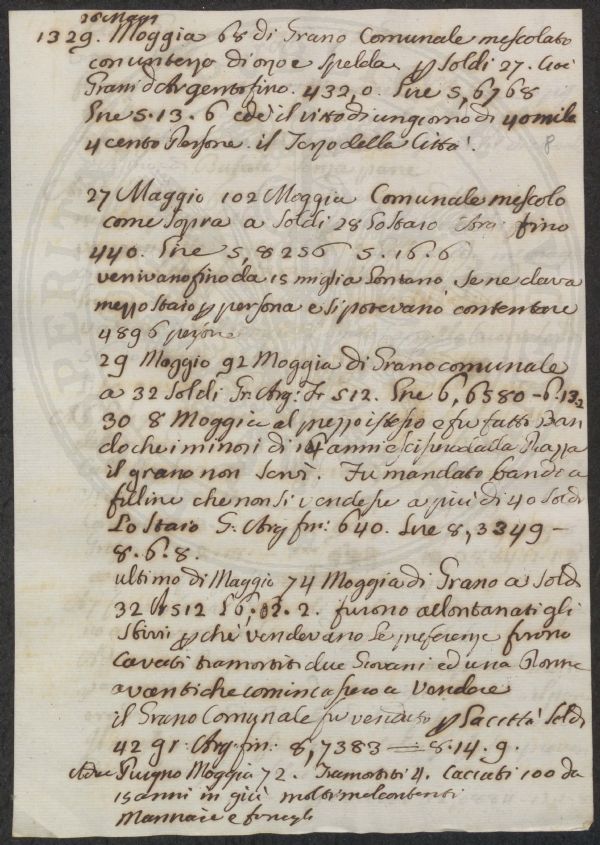 26 Magg
1329. Moggia 68 di Grano Comunale mescolato
con un terzo di orzo e spelda. p Soldi 27. Cioè
Grani d'Argento fino. 432,0. Lire 5,6768
Lire 5.13.6 cioè il vitto di un giorno di 40 mila
4 cento Persone. il Terzo della Città.
27 Maggio 102 Moggia Comunale mescolo
come sopra a Soldi 28 Lo Staio Arg: fino
440. Lire 5,8256 5.16.6
venivano fino da 15 miglia Lontano, Se ne dava
mezzo Staio p persona e si potevano contentare
4896 persone
29 Maggio 92 Moggia di Grano comunale
a 32 Soldi Gr: Arg: Fr 512. Lire 6,6580-6.13.2
30 8 Moggia al prezzo istesso e fu fatto Ban
do che i minori di 14 anni escisser dalla Piazza
il grano non Servì. Fu mandato bando a
filine che non si vendesse a più di 40 Soldi
Lo Staio G: Arg fin: 640. Lire 8,3349-
8.6.8.
ultimo di Maggio 74 Moggia di Grano a Soldi
32 512 L6.13.2. furono allontanati gli
Sbirri p che vendevano Le preferenze furono
Cavati tramortiti due Giovani ed una Donna
avanti che cominciassero a Vendere
il Grano Comunale fu venduto p La città Soldi
42 gr: Arg: fin: 8,7383 = 8.14.9.
Adue Giugno Moggia 72. Tramortiti 4. Cacciati 100 da
15 anni in giù molti malcontenti
Mannaie e